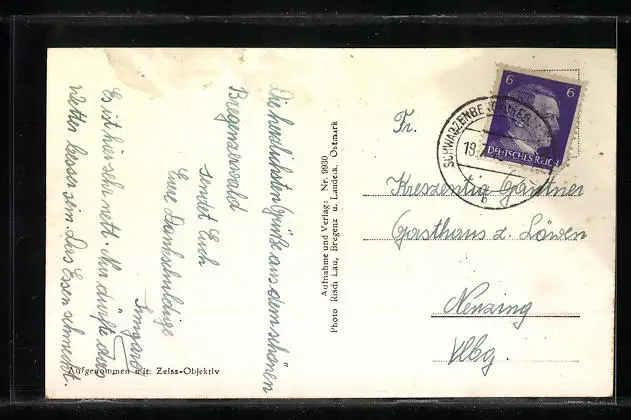 Die herzlichsten Grüße aus dem schönen
Bregenzerwald
sendet Euch
Eure
Irmgard
Es ist hier sehr nett. Nur dürfte das
Wetter besser sein. Das Essen schmeckt.
Aufgenommen mit: Zeiss-Objektiv
Aufnahme und Verlag: Nr. 9930
Photo Risch Lau, Bregenz u. Landeck, Ostmark
6 6
DEUTSCHES REICH
SCHWARZENBE
19.
b
Fr.
Kreszentia Gantner
Gasthaus z. Löwen
Nenzing
Vlbg.